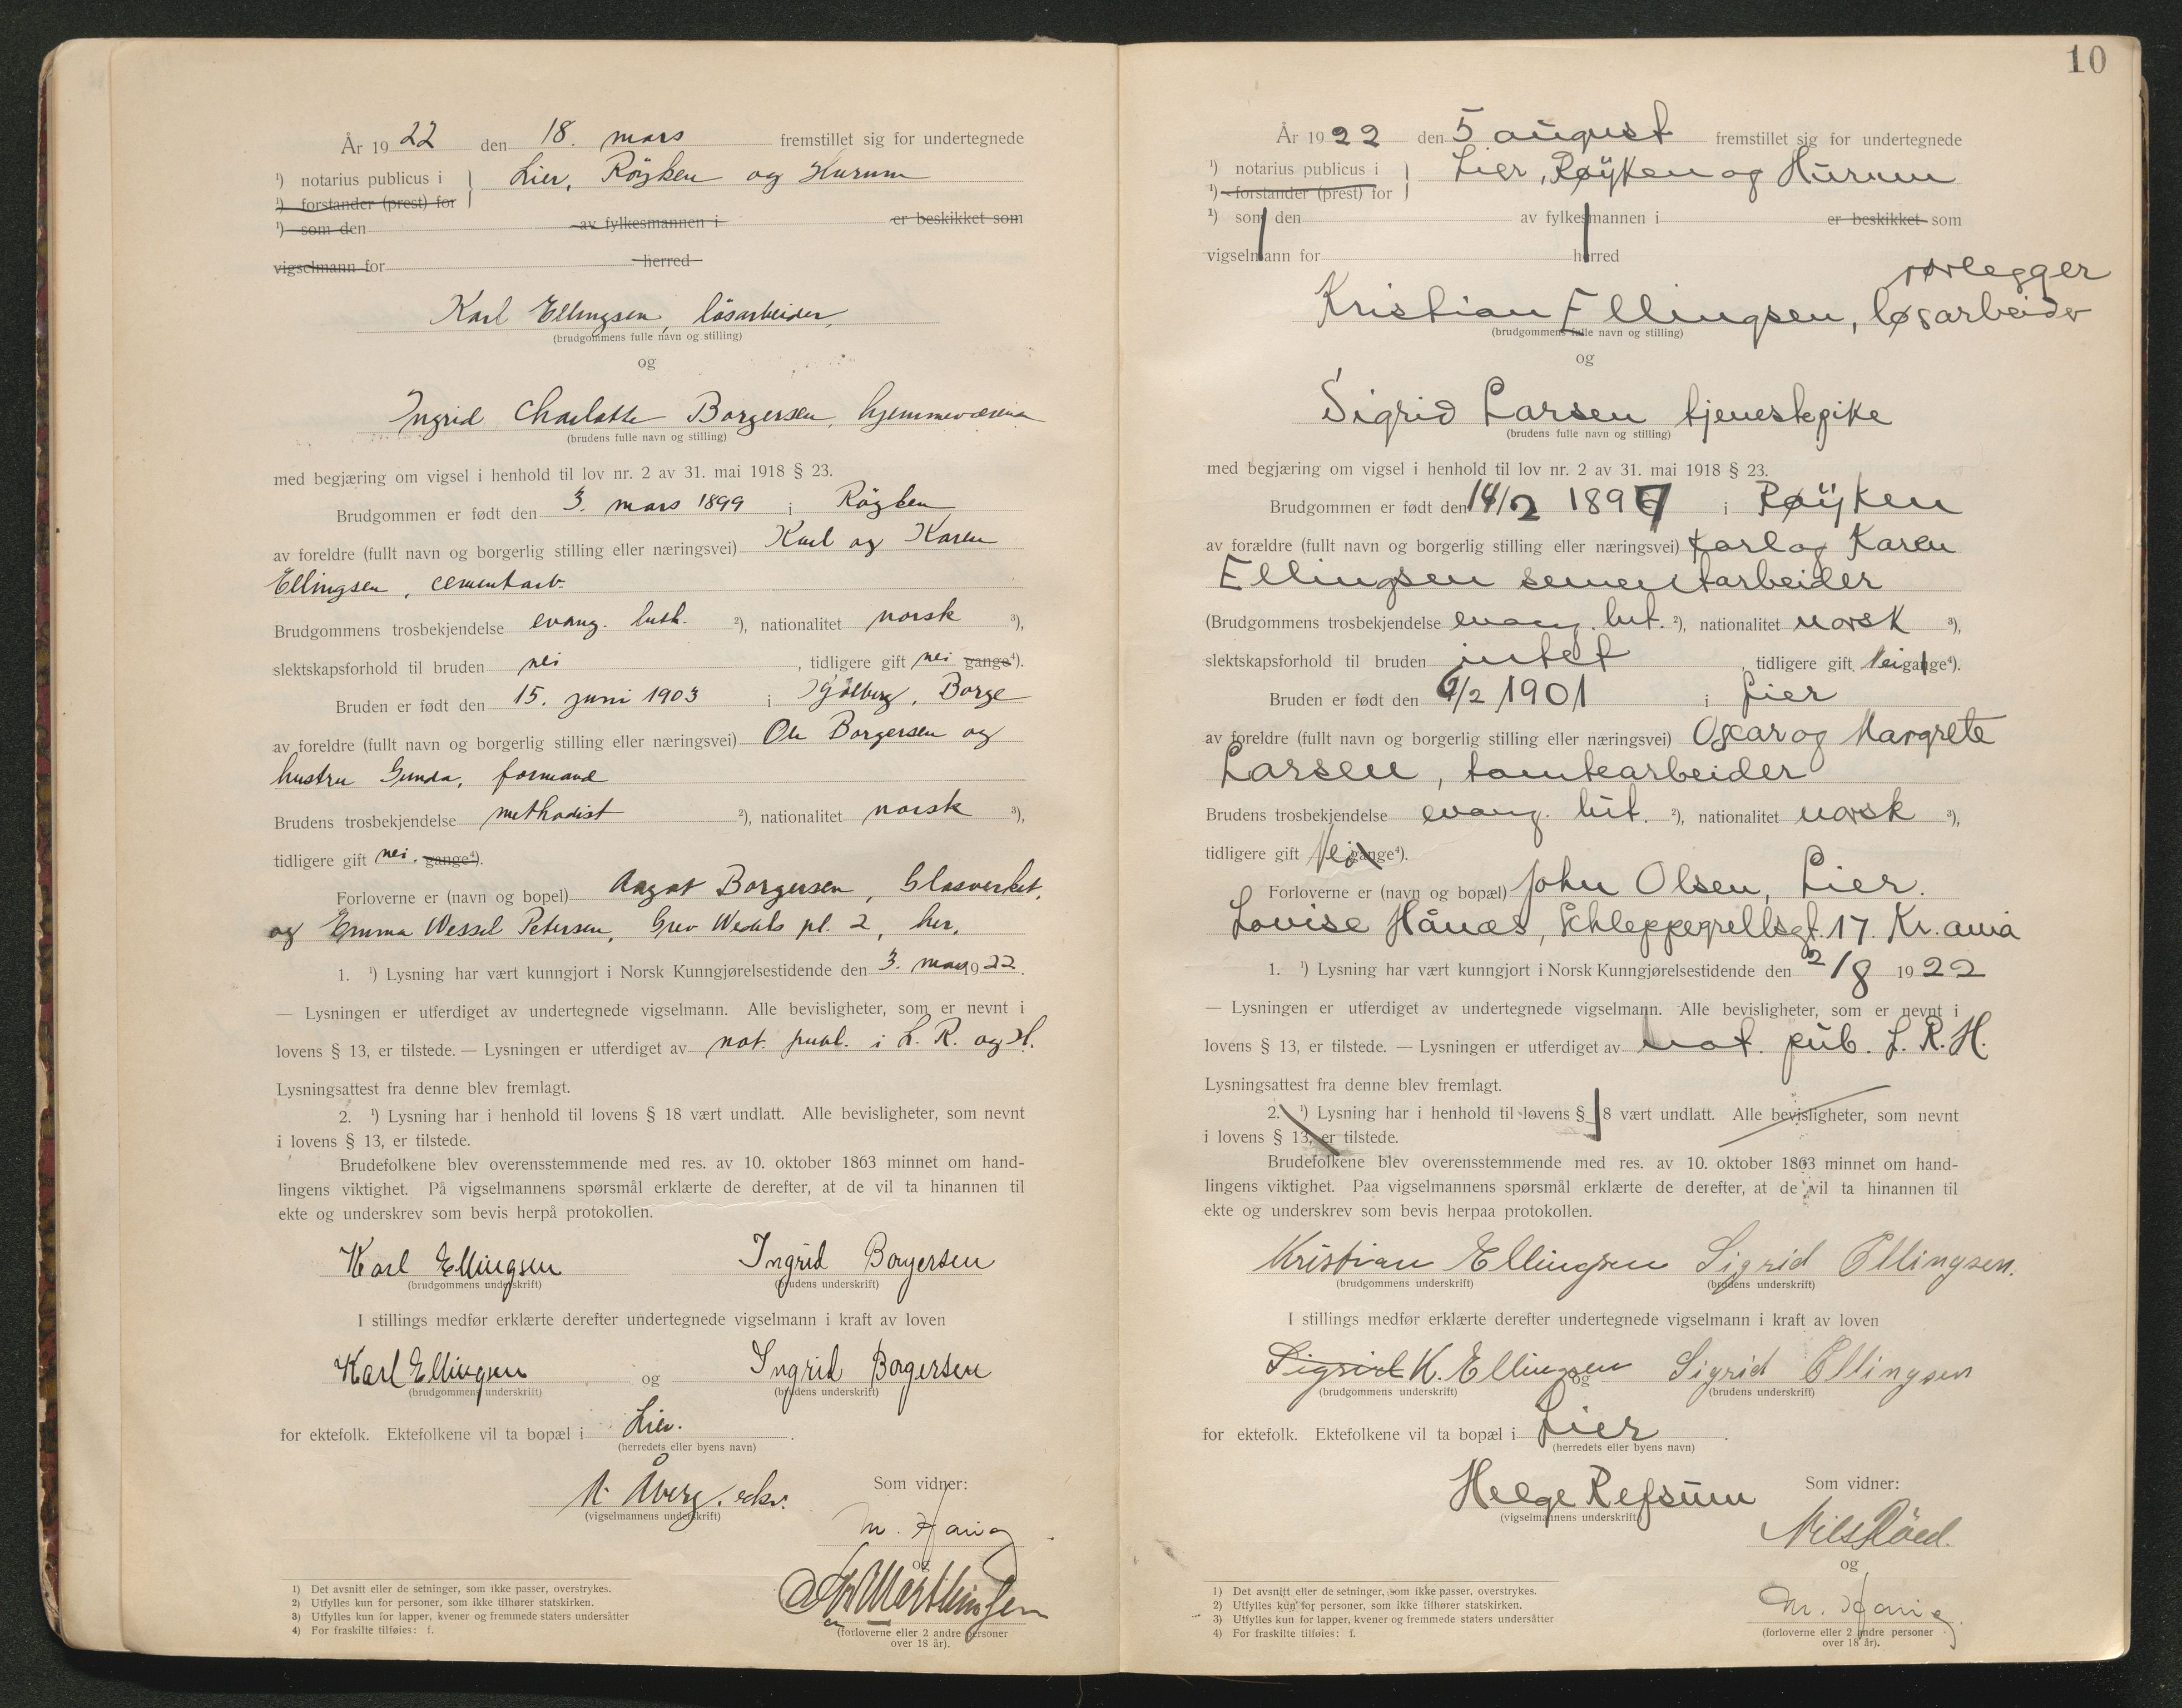 År 1922 den 18. mars fremstillet sig for undertegnede
¹) notarius publicus i } Lier, Röyken og Hurum
¹) forstander (prest) for
¹) som den av fylkesmannen i er beskikket som
vigselmann for herred
Karl Ellingsen, løsarbeider,
(brudgommens fulle navn og stilling)
og
Ingrid Charlotte Borgersen, hjemmeværende
(brudens fulle navn og stilling)
med begjæring om vigsel i henhold til lov nr. 2 av 31. mai 1918 § 23.
Brudgommen er født den 3. mars 1899 i Röyken
av foreldre (fullt navn og borgerlig stilling eller næringsvei) Karl og Karen
Ellingsen, cementarb.
Brudgommens trosbekjendelse evang. luth. ²), nationalitet norsk ³),
slektskapsforhold til bruden nei, tidligere gift nei gange⁴).
Bruden er født den 15. juni 1903 i Borge
av foreldre (fullt navn og borgerlig stilling eller næringsvei) Ole Borgersen og
hustru Gunda, formand
Brudens trosbekjendelse methodist ²), nationalitet norsk ³),
tidligere gift nei. gange⁴).
Forloverne er (navn og bopel) Aagot Borgersen, Glasverket,
og Emma Wessel Petersen, Grev Wedels pl. 2, her.
1. ¹) Lysning har vært kunngjort i Norsk Kunngjørelsestidende den 3. mars 1922.
— Lysningen er utferdiget av undertegnede vigselmann. Alle bevisligheter, som er nevnt i
lovens § 13, er tilstede. — Lysningen er utferdiget av not. publ. i L. R. og H.
Lysningsattest fra denne blev fremlagt.
2. ¹) Lysning har i henhold til lovens § 18 vært undlatt. Alle bevisligheter, som nevnt
i lovens § 13, er tilstede.
Brudefolkene blev overensstemmende med res. av 10. oktober 1863 minnet om hand-
lingens viktighet. På vigselmannens spørsmål erklærte de derefter, at de vil ta hinannen til
ekte og underskrev som bevis herpå protokollen.
Karl Ellingsen Ingrid Borgersen
(brudgommens underskrift) (brudens underskrift)
I stillings medfør erklærte derefter undertegnede vigselmann i kraft av loven
Karl Ellingsen og Ingrid Borgersen
(brudgommens underskrift) (brudens underskrift)
for ektefolk. Ektefolkene vil ta bopæl i Lier.
(herredets eller byens navn)
Åberg
(vigselmannens underskrift)
Som vidner:
og
(forloverne eller 2 andre personer
over 18 år).
1) Det avsnitt eller de setninger, som ikke passer, overstrykes.
2) Utfylles kun for personer, som ikke tilhører statskirken.
3) Utfylles kun for lapper, kvener og fremmede staters undersåtter
4) For fraskilte tilføies: f.
10
År 1922 den 5 august fremstillet sig for undertegnede
¹) notarius publicus i } Lier, Røyken og Hurum
¹) forstander (prest) for
¹) som den av fylkesmannen i er beskikket som
vigselmann for herred
rørlegger
Kristian Ellingsen, løsarbeider
(brudgommens fulle navn og stilling)
og
Sigrid Larsen tjenestepike
(brudens fulle navn og stilling)
med begjæring om vigsel i henhold til lov nr. 2 av 31. mai 1918 § 23.
Brudgommen er født den 14/2 1897 i Røyken
av forældre (fullt navn og borgerlig stilling eller næringsvei) Karl og Karen
Ellingsen sementarbeider
(Brudgommens trosbekjendelse evang. lut. ²), nationalitet norsk ³),
slektskapsforhold til bruden intet, tidligere gift Nei gange⁴).
Bruden er født den 6/2 1901 i Lier
av foreldre (fullt navn og borgerlig stilling eller næringsvei) Oscar og Margrete
Larsen, tomtearbeider
Brudens trosbekjendelse evang. lut. ²), nationalitet norsk ³),
tidligere gift Nei gange⁴).
Forloverne er (navn og bopæl) John Olsen, Lier.
Lovise Hånæs, Schleppegrellsgt. 17. Kr.ania
1. ¹) Lysning har vært kunngjort i Norsk Kunngjørelsestidende den 2/8 1922
— Lysningen er utferdiget av undertegnede vigselmann. Alle bevisligheter, som er nevnt i
lovens § 13, er tilstede. — Lysningen er utferdiget av not. pub. L. R. H.
Lysningsattest fra denne blev fremlagt.
2. ¹) Lysning har i henhold til lovens § 18 vært undlatt. Alle bevisligheter, som nevnt
i lovens § 13, er tilstede.
Brudefolkene blev overensstemmende med res. av 10. oktober 1863 minnet om hand-
lingens viktighet. Paa vigselmannens spørsmål erklærte de derefter, at de vil ta hinannen til
ekte og underskrev som bevis herpaa protokollen.
Kristian Ellingsen Sigrid Ellingsen.
(brudgommens underskrift) (brudens underskrift)
I stillings medfør erklærte derefter undertegnede vigselmann i kraft av loven
Sigrid K. Ellingsen og Sigrid Ellingsen
(brudgommens underskrift) (brudens underskrift)
for ektefolk. Ektefolkene vil ta bopæl i Lier.
(herredets eller byens navn)
Helge Refsum
(vigselmannens underskrift)
Som vidner:
og
(forloverne eller 2 andre personer
over 18 år).
1) Det avsnitt eller de setninger, som ikke passer, overstrykes.
2) Utfylles kun for personer, som ikke tilhører statskirken.
3) Utfylles kun for lapper, kvener og fremmede staters undersåtter
4) For fraskilte tilføies: f.